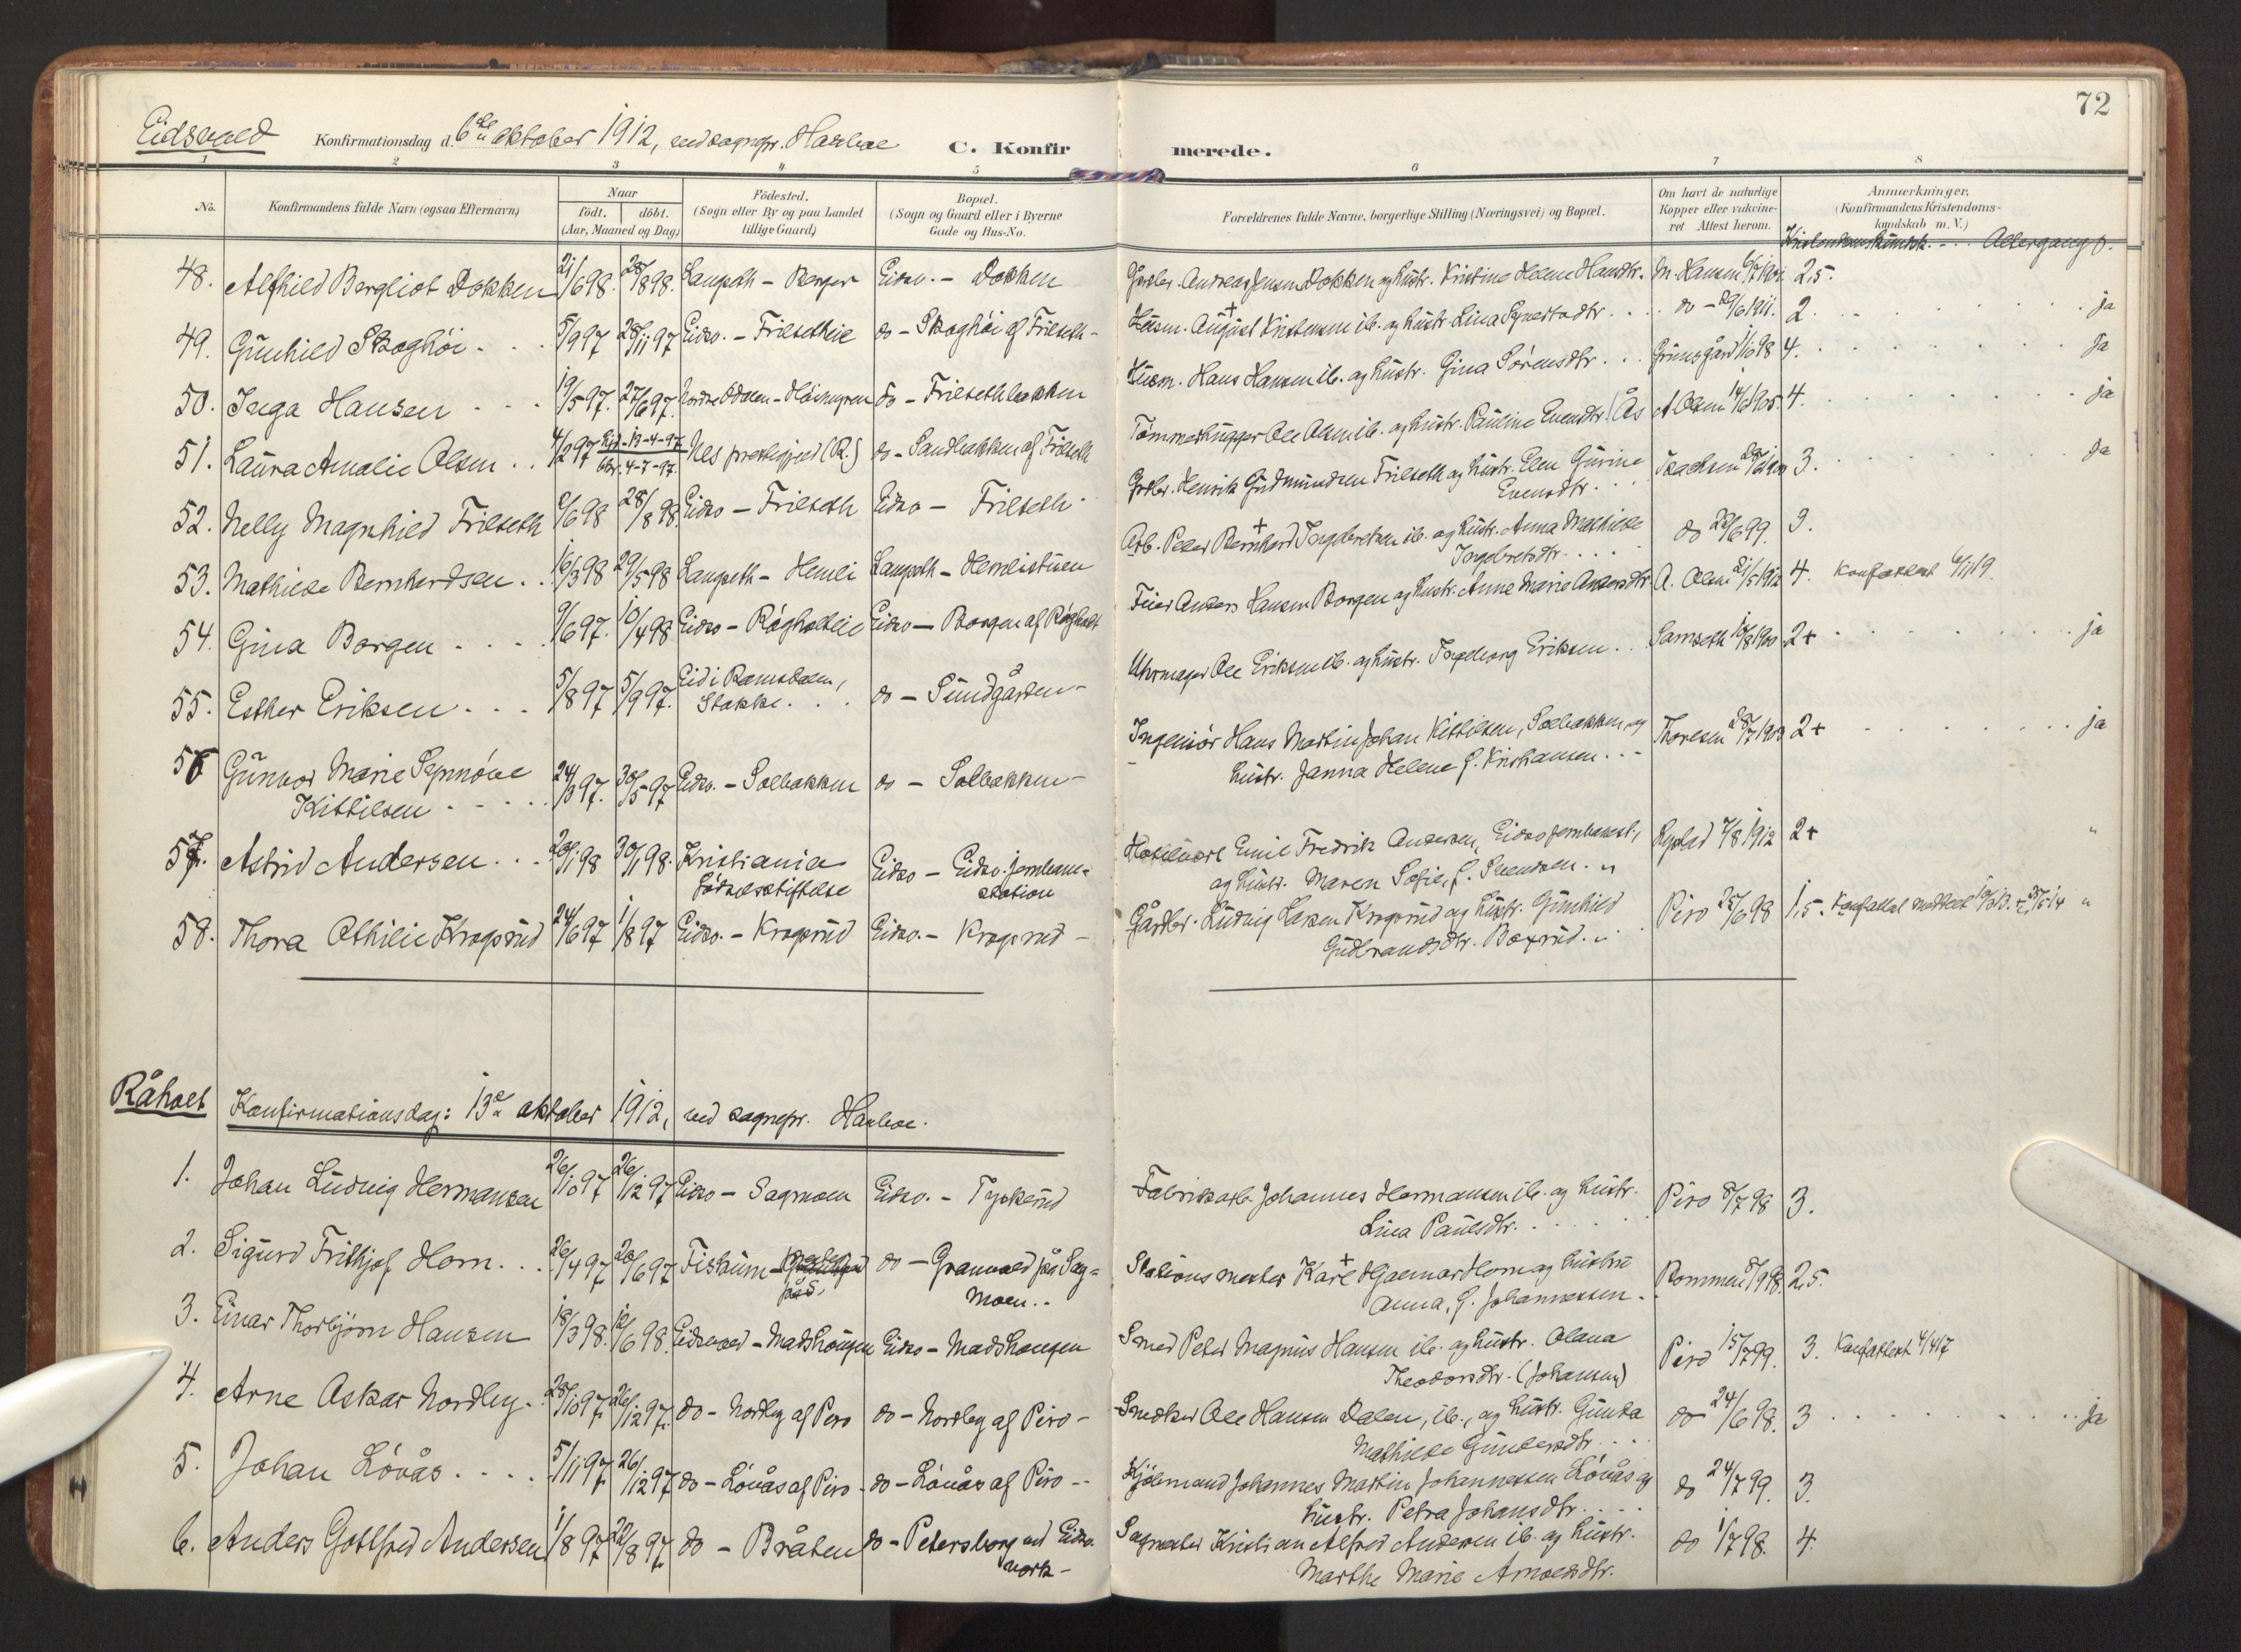 72
Eidsvold Konfirmationsdag d. 6te oktober 1912, ved sognepr. Harboe C. Konfirmerede.
1 2 3 4 5 6 7 8
No. Konfirmandens fulde Navn (ogsaa Efternavn) Naar födt. döbt. (Aar, Maaned og Dag) Födested. (Sogn eller By og paa Landet tillige Gaard) Bopæl. (Sogn og Gaard eller i Byerne Gade og Hus-No. Forældrenes fulde Navne, borgerlige Stilling (Næringsvei) og Bopæl. Om havt de naturlige Kopper eller vaksineret. Attest herom. Anmærkninger. (Konfirmandens Kristendomskundskab m. V.)
48. Alfhild Bergliot Dokken 21/6 98. 28/8 98. Langseth - Berger Eidsv. - Dokken Andreas Jensen Dokken og hustr. Kristine Helene Hansdtr. M. Hansen 2,5.
49. Gunhild Skoghöi 5/9 97 28/11 97 Eidsv. - Frilsethie do - Skoghöi af Frilseth - Husm. August Kristensen ib. og hustr. Lina do - 29/6 1911. 2. ja
50. Inga Hansen 19/5 97. 27/6 97. Nordre Odalen - do - Frilsethbakken Husm. Hans Hansen ib. og hustr. Gina Sörensdtr. Grimsgård 1/10 98 4. ja
51. Laura Amalie Olsen 4/2 97 13-4-97 4-7-97. Nes prestegjeld (R.) do - Sandbakken af Frilseth Tömmerhugger Ole Olsen ib. og hustr. Pauline Evensdtr. Ås A. Olsen 14/6 1905. 4. ja
52. Nelly Magnhild Frilseth 2/6 98 28/8 98. Eidsv - Frilseth Eidsv - Frilseth - Henrik Gudmundsen Frilseth og hustr. Elen Gurine Evensdtr. Isachsen 3. ja
53. Mathilde Bernhardsen 16/3 98 29/5 98 Langseth - Hemli Langseth - Hemlistuen Arb. Peder Bernhard Ingebretsen ib. og hustr. Anna Mathilde Ingebretsdtr. do 22/6 99. 3.
54. Gina Borgen 9/6 97. 10/4 98 Eidsv - Rögholteie Eidsv - Borgen af Rögholt Feier Anders Hansen Borgen og hustr. Anne Marie Andersdtr. A. Olsen 21/5 1912 4. Konfattest 6/11 19.
55. Esther Eriksen 5/8 97 5/9 97. Eid i Romsdalen, Stokke. do - Sundgården - Uhrmager Ole Eriksen ib. og hustr. Ingeborg Eriksen Samseth 10/8 1900 2+ ja
56 Gunvor Marie Synnöve Kittilsen 24/3 97. 30/5 97 Eidsv. - Solbakken do - Solbakken - Ingeniör Hans Martin Johan Kittilsen, Solbakken, og hustr. Janna Helene f. Kristiansen Thoresen 28/7 1903 2+ ja
57. Astrid Andersen 20/1 98 30/1 98. Kristiania födselsstiftelse Eidsv - Eidsv. jernbanestation Hotelvært Emil Fredrik Andersen, Eidsv jernbanest., og hustr. Maren Sofie, f. Svendsen. Rystad 7/8 1912 2+ "
58. Thora Othilie Krogsrud 24/6 97 1/8 97 Eidsv. - Krogsrud Eidsv. - Krogsrud - Gårdbr. Ludvig Larsen Krogsrud og hustr. Gunhild Gudbrandsdtr. Boxrud. Piro 25/6 98 1,5. "
Råholt Konfirmationsdag: 13de oktober 1912, ved sognepr. Harboe.
1. Johan Ludvig Hermansen 26/10 97 26/12 97 Eidsv - Sagmoen Eidsv. - Tyskerud Fabrikarb. Johannes Hermansen ib. og hustr. Lina Paulsdtr. Piro 8/7 98 3.
2. Sigurd Frithjof Horn 26/4 97 20/6 97 Fiskum - do - Granvold på Sagmoen Stationsmester Karl Hjalmar Horn og hustru Anna, f. Johannessen. Rommen 2,5.
3. Einar Thorbjörn Hansen 18/3 98. 12/6 98. Eidsvold - Madshaugen Eidsv - Madshaugen Smed Peter Magnus Hansen ib. og hustr. Olana Theodorsdtr. (Johansen) Piro 15/7 99. 3. Konfattest 4/4 17
4. Arne Oskar Nordby 28/10 97. 26/12 97. do - Nordby af Piro do - Nordby af Piro - Snedker Ole Hansen Dalen, ib., og hustr. Gunda Mathilde Gundersdtr. do 24/6 98. 3 ja
5. Johan Lövås 5/11 97. 26/12 97 do - Lövås af Piro do - Lövås af Piro - Johannes Martin Johannessen Lövås og hustr. Petra Johansdtr. do 24/7 99. 3.
6. Anders Gotlfred Andersen 1/8 97 22/8 97. do - Bråten do - Petersborg ved Eidsv. verk - Sagmester Kristian Alfred Andersen ib. og hustr. Marthe Marie Arnoldsdtr. do 1/7 98. 4.